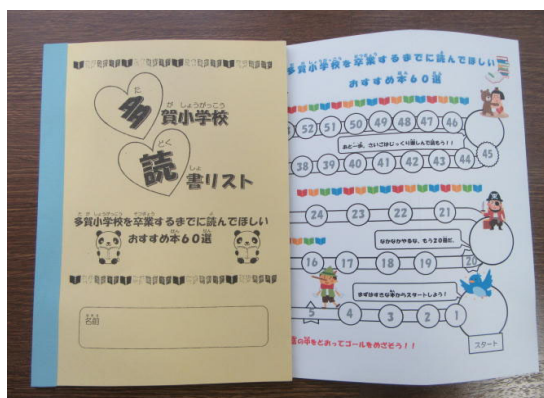 た が しょうがっこう
多賀小学校
どく しょ
読書リスト
た が しょうがっこう そつぎょう よ
多賀小学校を卒業するまでに読んでほしい
ほん せん
おすすめ本60選
なまえ
名前
多賀小学校を卒業するまでに読んでほしい
おすすめ本60選
52 51 50 49 48 47 46
あと一歩、さいごはじっくり楽しんで読もう！！
38 39 40 41 42 43 44 45
24 23 22 21
なかなかやるな、もう20冊だ。
16 17 18 19 20
まずはすきな本からスタートしよう！
5 4 3 2 1
スタート
をとおってゴールをめざそう！！